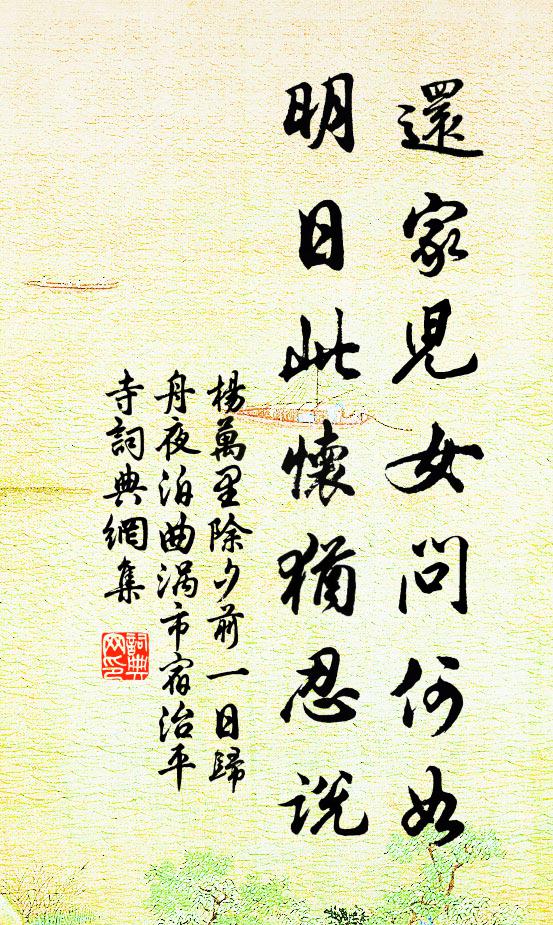 還家兒女問何如
明日此懷猶忍說
楊萬里除夕前一日歸
舟夜泊曲涡市宿治平
寺詞典網集
詞典
网印